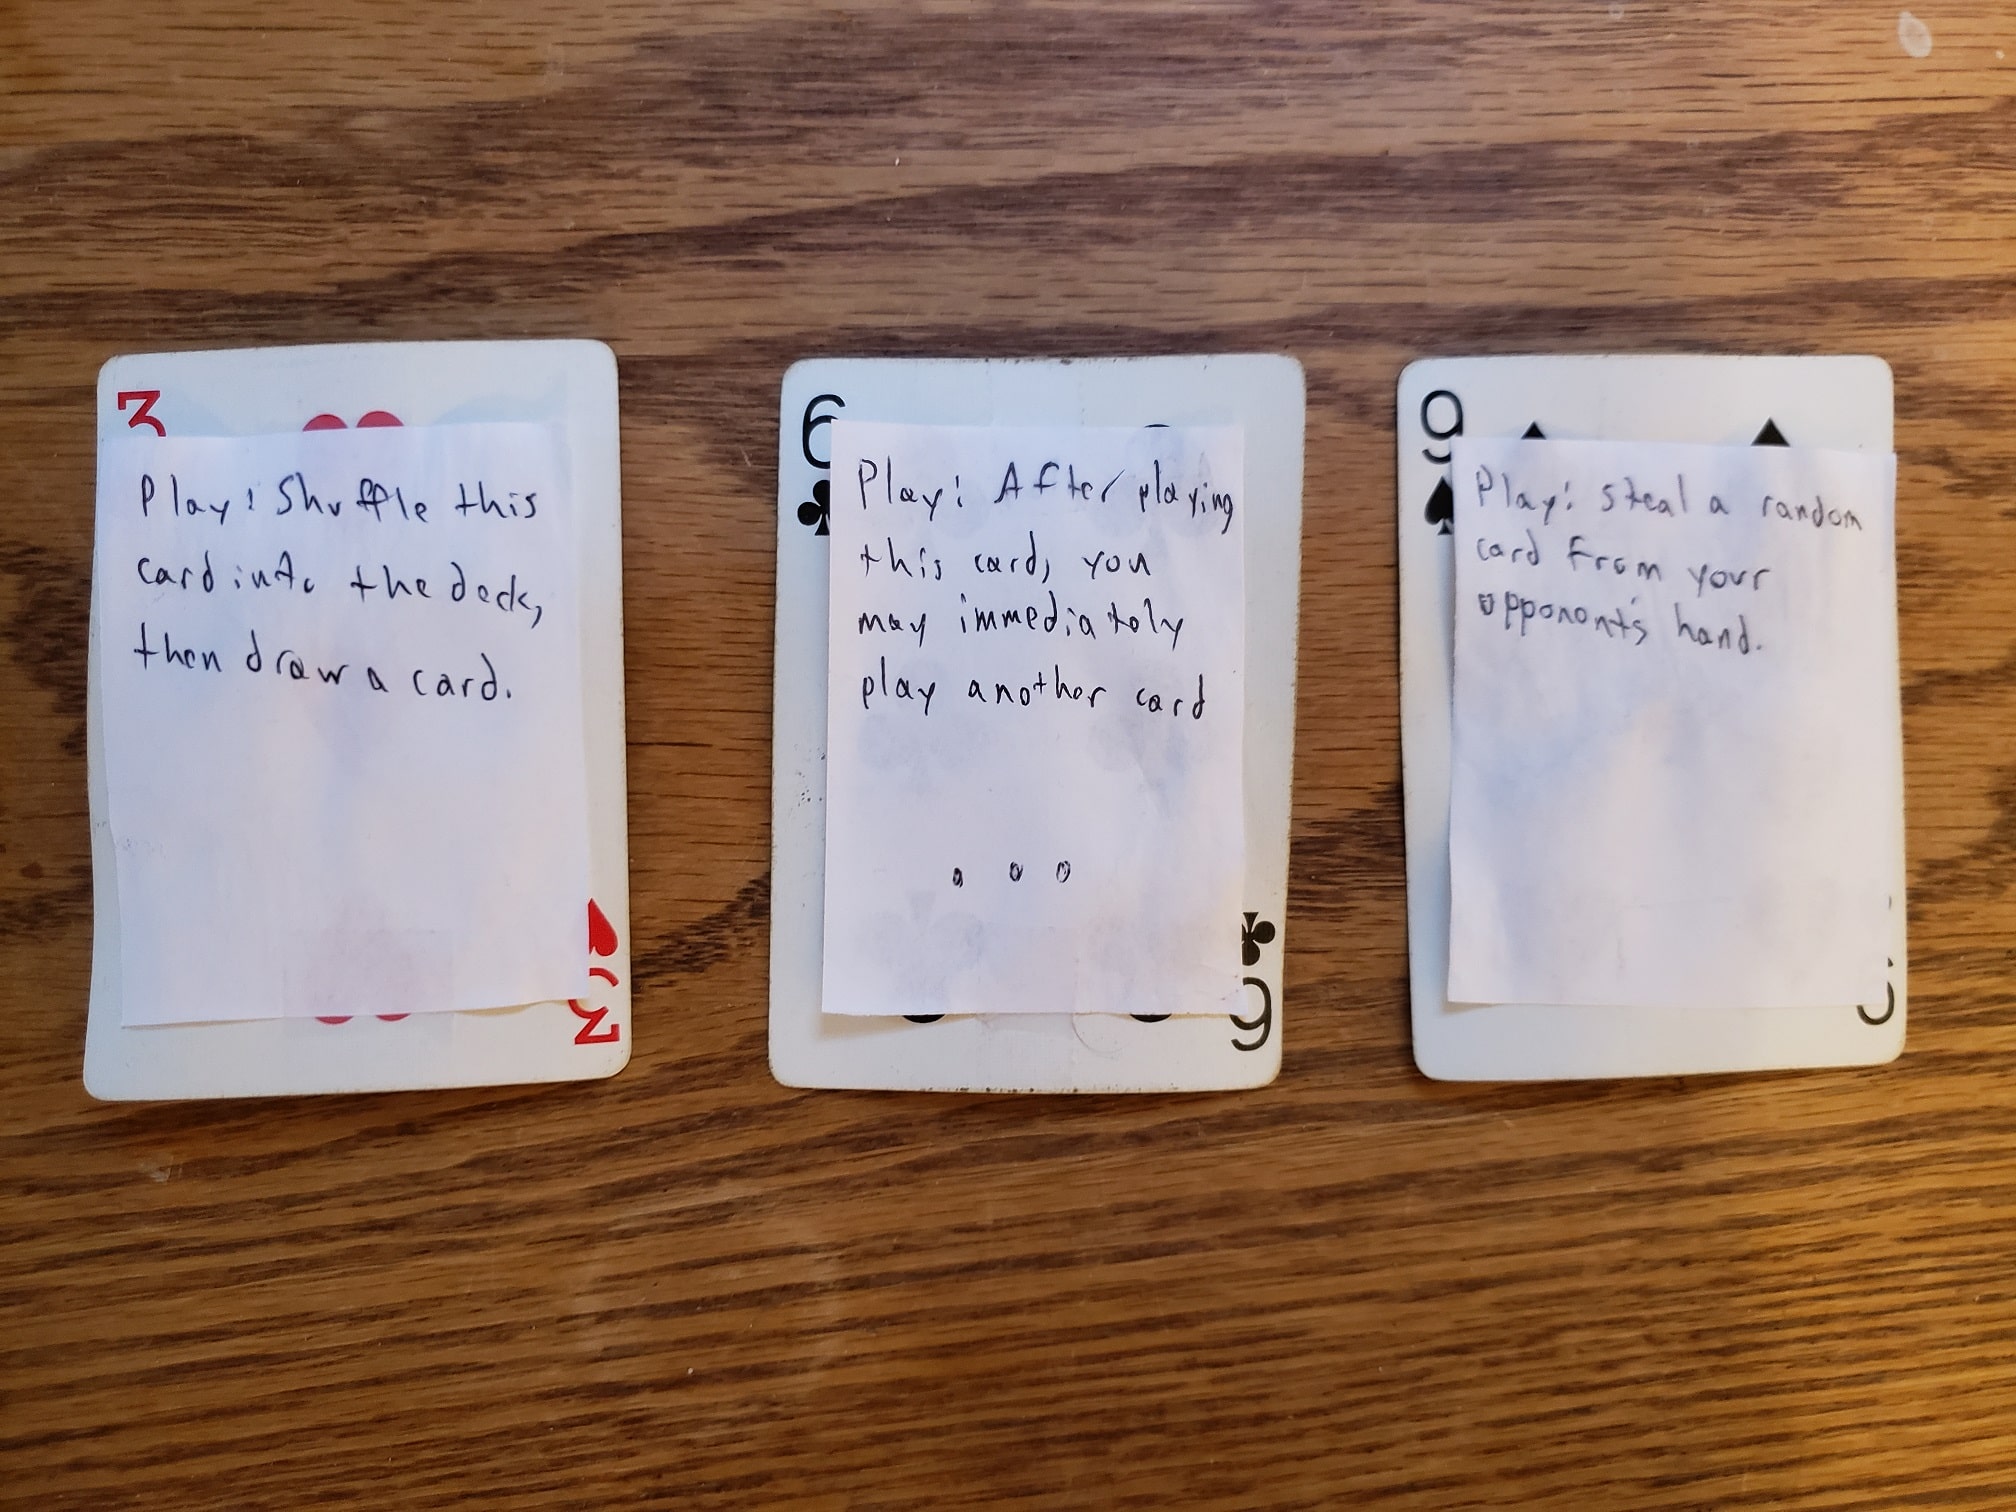 3
Play: Shuffle this
card into the deck,
then draw a card.
3
6
Play: After playing
this card, you
may immediately
play another card
...
6
9
Play: steal a random
card from your
opponent's hand.